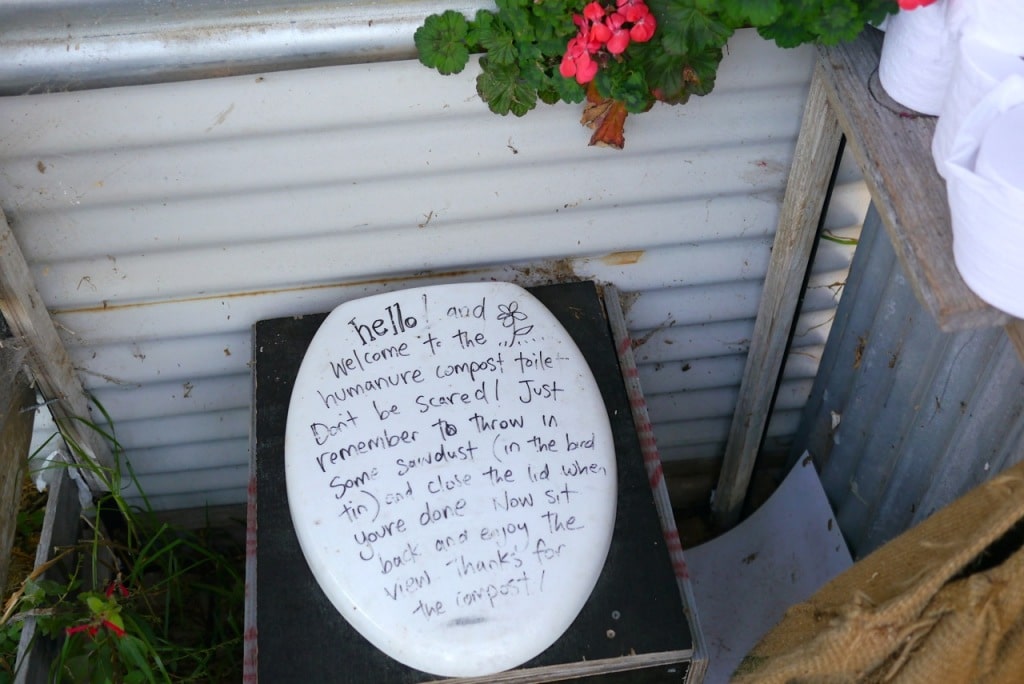 hello! and
welcome to the
humanure compost toilet
Don't be scared! Just
remember to throw in
some sawdust (in the bird
tin) and close the lid when
youre done Now sit
back and enjoy the
view. Thanks for
the compost!